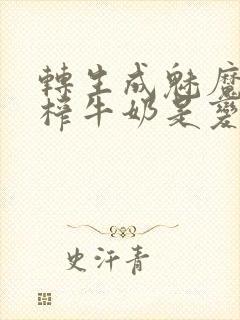 轉生成魅魔
榨牛奶是變
史汗青